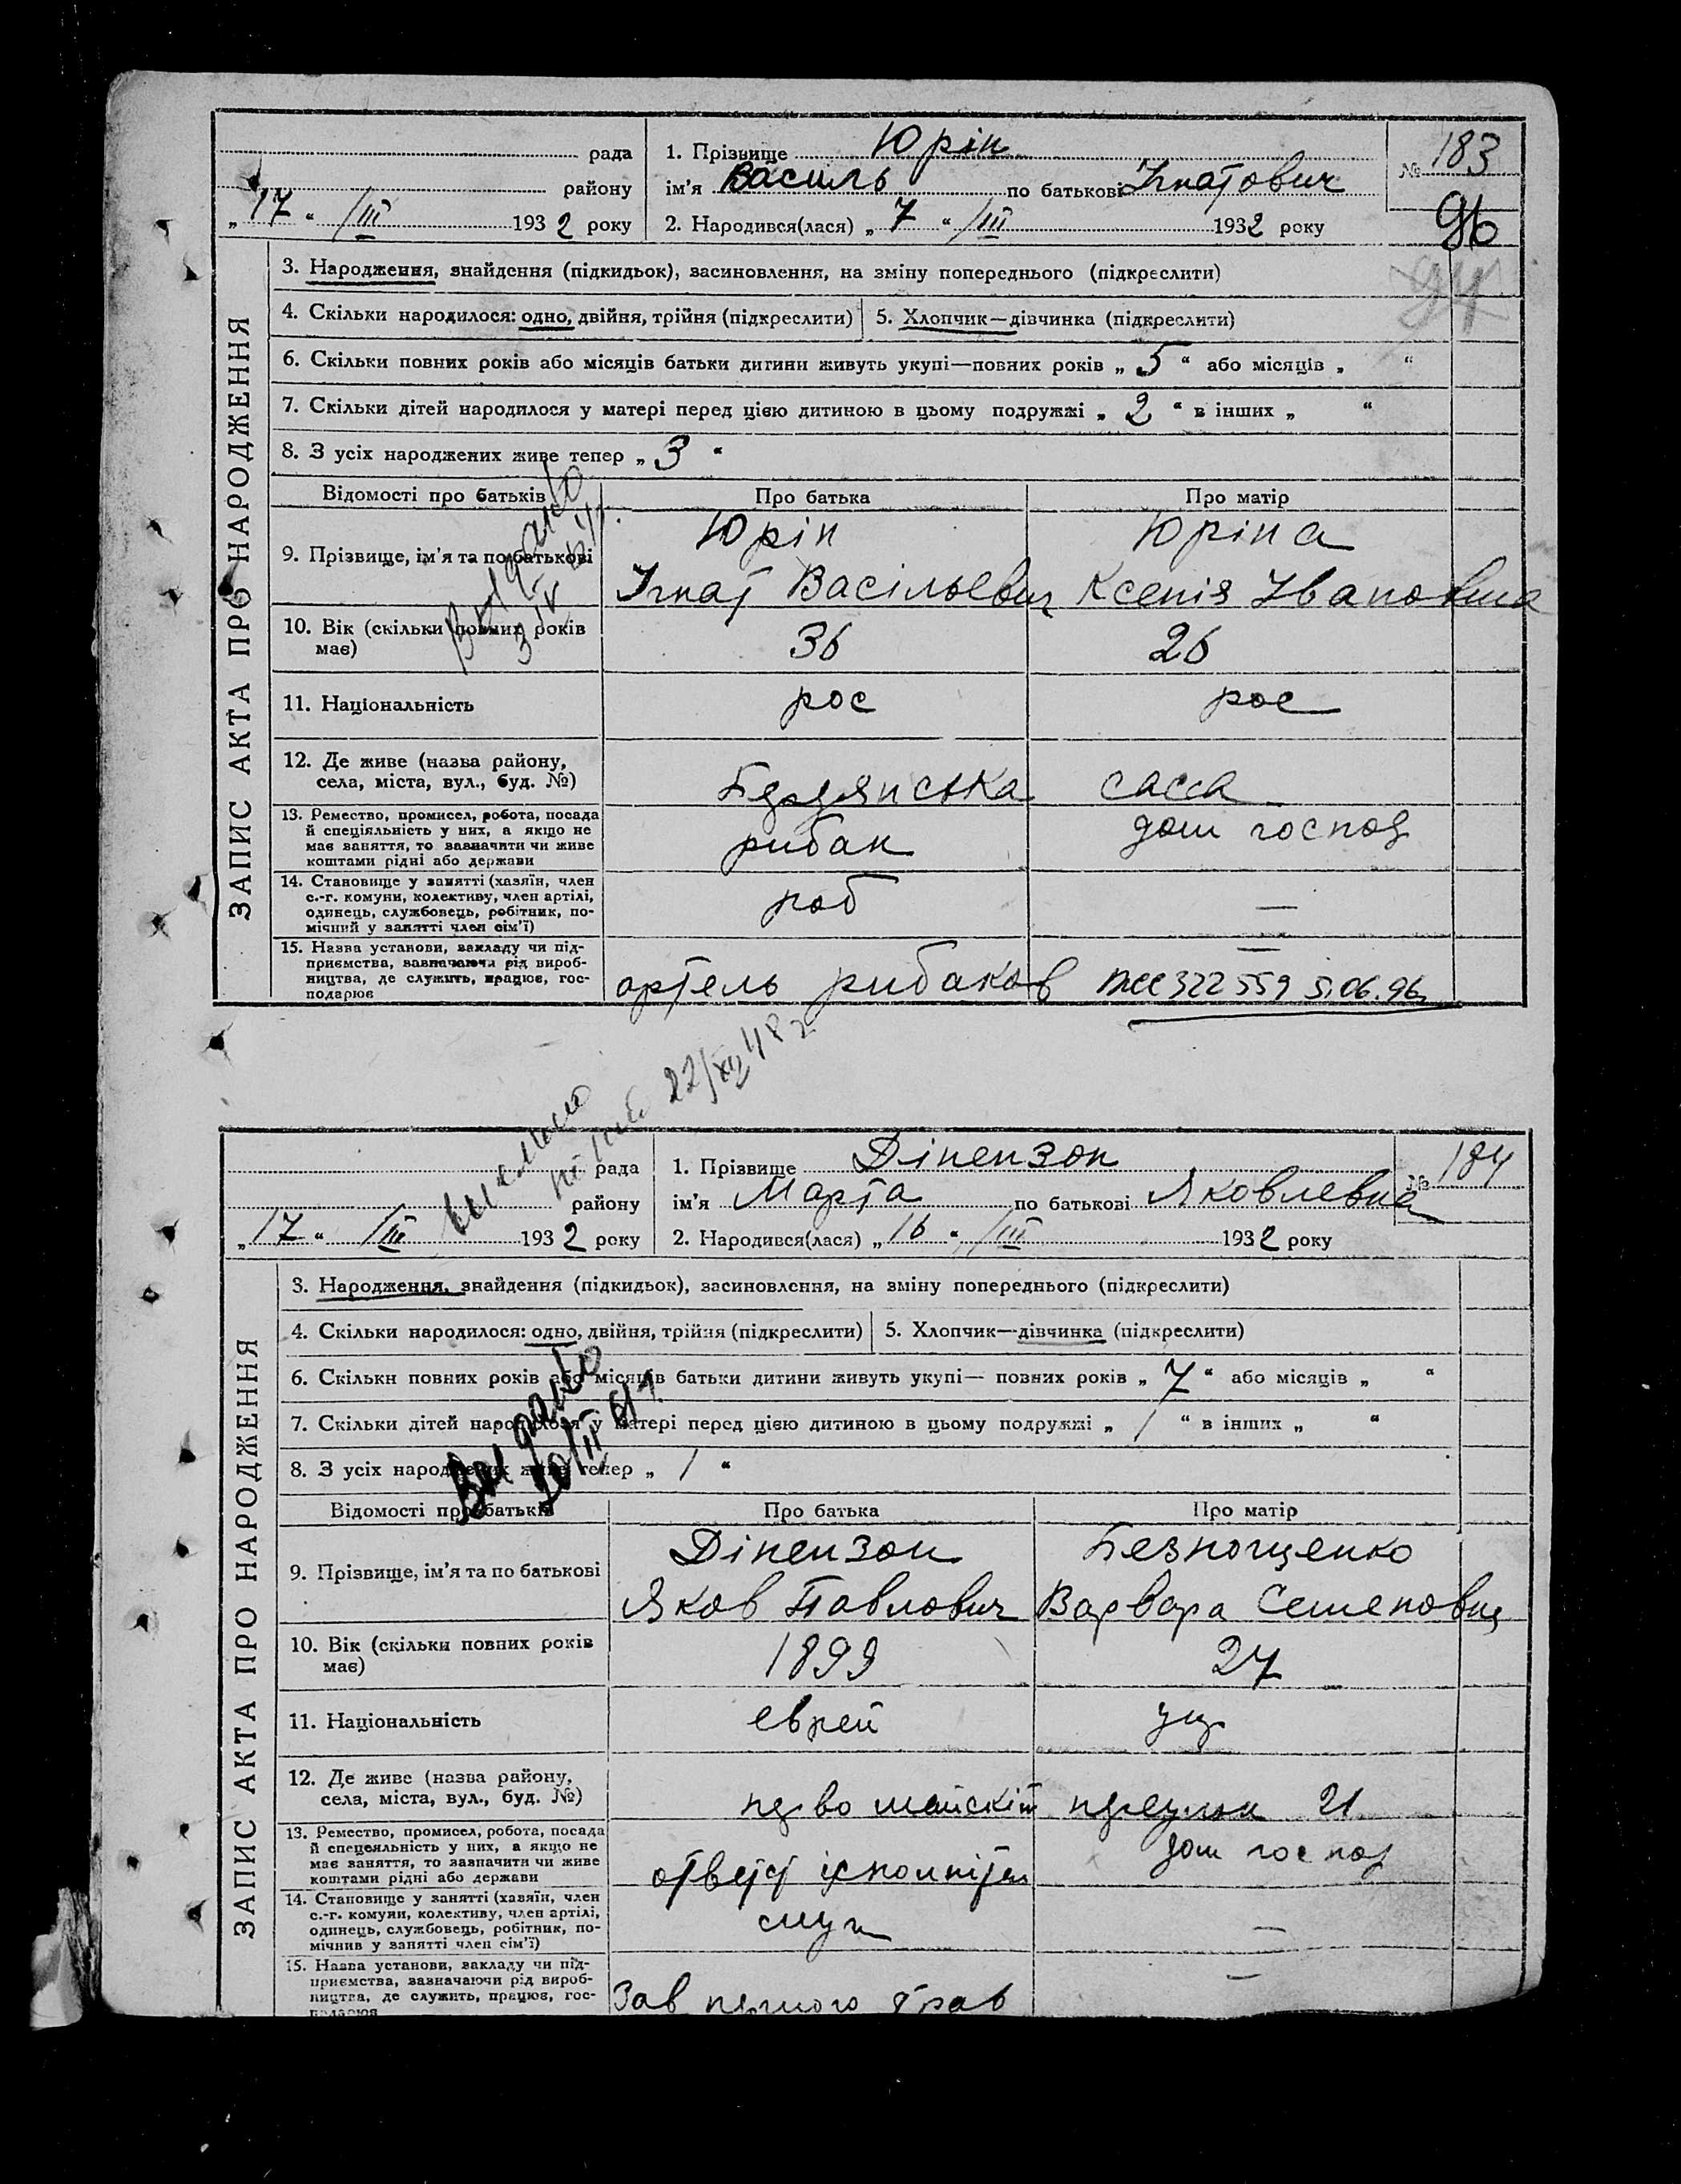 рада
1. Прізвище Юрін
№ 183
району
ім'я Василь по батькові Ігнатович
„17“ /III 1932 року
2. Народився(лася) „7“ /III 1932 року
96
94
ЗАПИС АКТА ПРО НАРОДЖЕННЯ
3. Народження, знайдення (підкидьок), засиновлення, на зміну попереднього (підкреслити)
4. Скільки народилося: одно, двійня, трійня (підкреслити)
5. Хлопчик—дівчинка (підкреслити)
6. Скільки повних років або місяців батьки дитини живуть укупі—повних років „5“ або місяців „ “
7. Скільки дітей народилося у матері перед цією дитиною в цьому подружжі „2“ в інших „ “
8. З усіх народжених живе тепер „3“
Відомості про батьків
Про батька
Про матір
9. Прізвище, ім'я та по батькові
Юрін
Ігнат Васільевич
Юріна
Ксенія Івановна
10. Вік (скільки повних років
має)
36
26
11. Національність
рос
рос
12. Де живе (назва району,
села, міста, вул., буд. №)
Бердянська саса
13. Ремество, промисел, робота, посада
й спеціяльність у них, а якщо не
має заняття, то зазначити чи живе
коштами рідні або держави
рибак
дом господ
14. Становище у занятті (хазяїн, член
с.-г. комуни, колективу, член артілі,
одинець, службовець, робітник, по-
мічний у занятті член сім'ї)
роб
—
15. Назва установи, закладу чи під-
приємства, зазначаючи рід вироб-
ництва, де служить, працює, гос-
подарює
артель рибаков
—
322559 5.06.96
22/XII 48 г
рада
1. Прізвище Дінензон
№ 184
району
ім'я Марта по батькові Яковлевна
„17“ /III 1932 року
2. Народився(лася) „16“ /III 1932 року
ЗАПИС АКТА ПРО НАРОДЖЕННЯ
3. Народження, знайдення (підкидьок), засиновлення, на зміну попереднього (підкреслити)
4. Скільки народилося: одно, двійня, трійня (підкреслити)
5. Хлопчик—дівчинка (підкреслити)
6. Скільки повних років або місяців батьки дитини живуть укупі— повних років „7“ або місяців „ “
7. Скільки дітей народилося у матері перед цією дитиною в цьому подружжі „1“ в інших „ “
8. З усіх народжених живе тепер „1“
Видано
Відомості про батьків
Про батька
Про матір
9. Прізвище, ім'я та по батькові
Діпензон
Яков Павлович
Безпощенко
Варвара Семеновна
10. Вік (скільки повних років
має)
1899
27
11. Національність
еврей
укр
12. Де живе (назва району,
села, міста, вул., буд. №)
переулок 21
13. Ремество, промисел, робота, посада
й спецеяльність у них, а якщо не
має заняття, то зазпачити чи живе
коштами рідні або держави
дом господ
14. Становище у занятті (хазяїн, член
с.-г. комуни, колективу, член артілі,
одинець, службовець, робітник, по-
мічнив у занятті член сім'ї)
служ
—
15. Назва установи, закладу чи під-
приємства, зазначаючи рід вироб-
ництва, де служить, працює, гос-
подарює
Зав
—